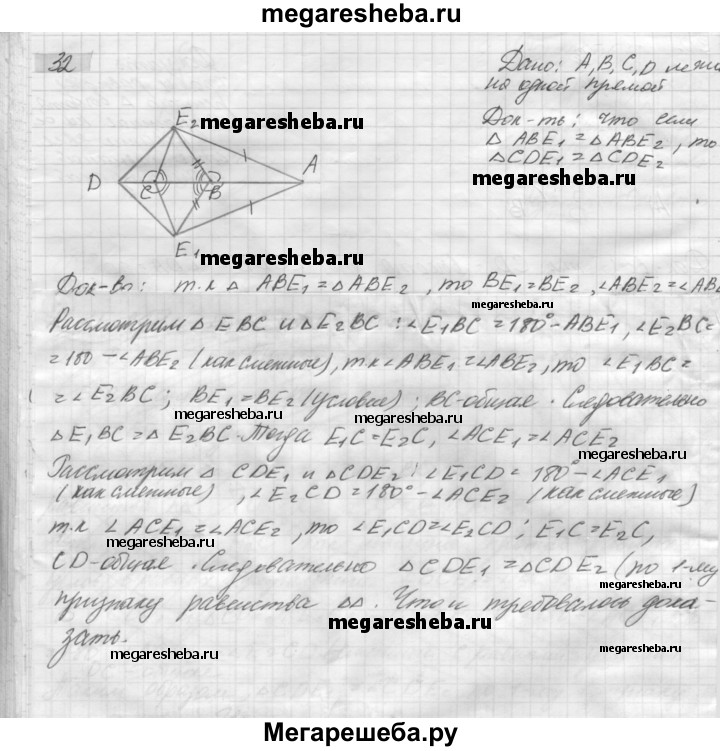 megaresheba.ru
32
Дано: A, B, C, D лежа
на одной прямой
Док-ть: что если
△ ABE₁ = △ ABE₂, то
△ CDE₁ = △ CDE₂
megaresheba.ru
E₂
megaresheba.ru
A
D
C
B
E₁
megaresheba.ru
Док-во: т.к △ ABE₁ = △ ABE₂, то BE₁ = BE₂, ∠ABE₂ = ∠AB
megaresheba.ru
Рассмотрим △ EBC и △ E₂BC : ∠E₁BC = 180° - ABE₁, ∠E₂BC =
= 180 - ∠ABE₂ (как смежные), т.к ∠ABE₁ = ∠ABE₂, то ∠E₁BC =
= ∠E₂BC ; BE₁ = BE₂ (условие) ; BC - общая. Следовательно
megaresheba.ru megaresheba.ru
△ E₁BC = △ E₂BC. Тогда E₁C = E₂C, ∠ACE₁ = ∠ACE₂
Рассмотрим △ CDE₁ и △ CDE₂ : ∠E₁CD = 180° - ∠ACE₁
(как смежные), ∠E₂CD = 180° - ∠ACE₂ (как смежные)
т.к ∠ACE₁ = ∠ACE₂, то ∠E₁CD = ∠E₂CD ; E₁C = E₂C,
CD - общая. Следовательно △ CDE₁ = △ CDE₂ (по 1-му
megaresheba.ru
признаку равенства △△. Что и требовалось дока-
megaresheba.ru
зать.
megaresheba.ru
megaresheba.ru
Мегарешеба.ру